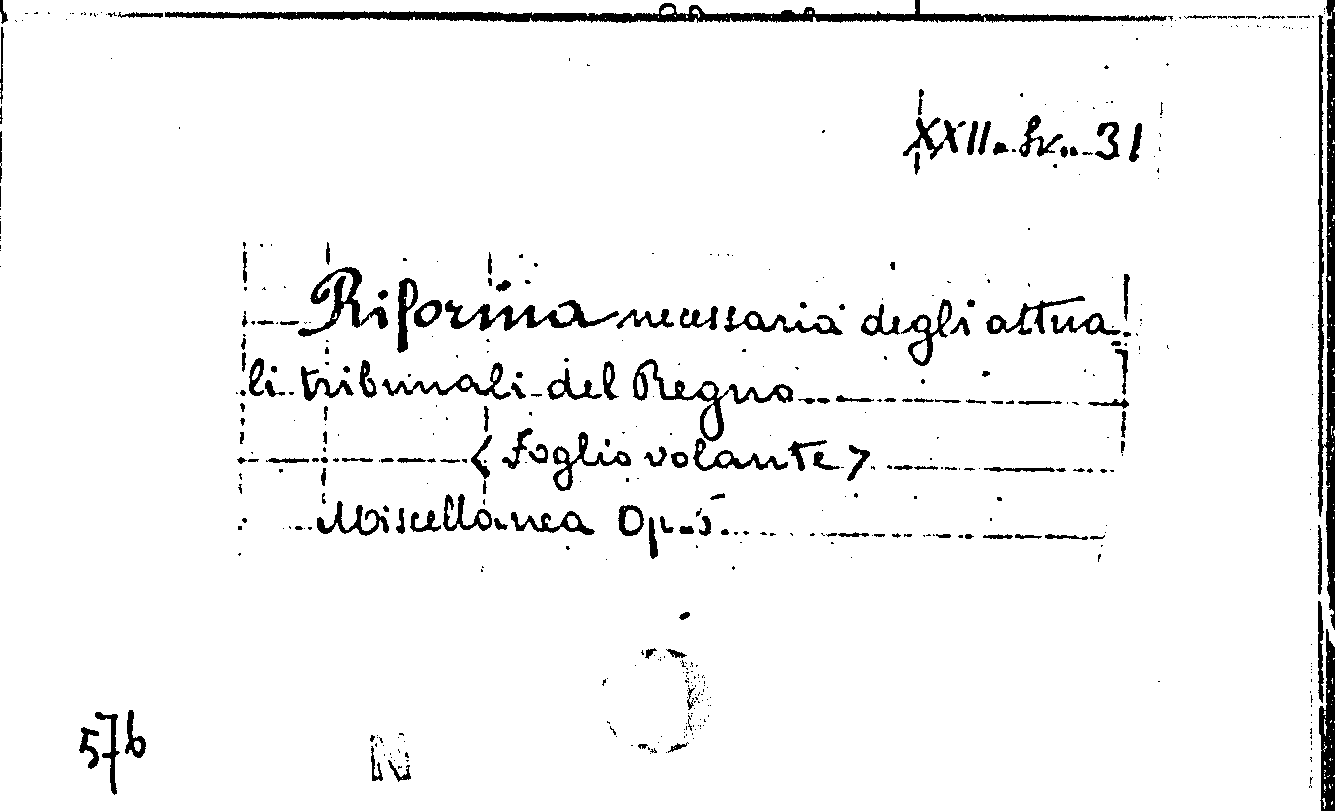 XXII. Sv.. 31
Riforma necessaria degli attua
li tribunali del Regno
< Foglio volante >
Miscellanea Op. 5.
576
N